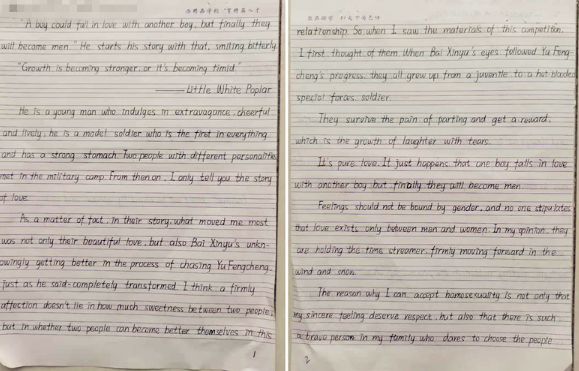 "A boy could fall in love with another boy, but finally they
will become men." He starts his story with that, smiling bitterly.
"Growth is becoming stronger, or it's becoming timid."
——Little White Poplar
He is a young man who indulges in extravagance, cheerful
and lively; he is a model soldier who is the first in everything
and has a strong stomach. Two people with different personalities
met in the military camp. From then on, I only tell you the story
of love.
As a matter of fact, in their story, what moved me most
was not only their beautiful love, but also Bai Xinyu's unkn-
owingly getting better in the process of chasing Yu Fengcheng,
just as he said: completely transformed. I think a firmly
affection doesn't lie in how much sweetness between two people,
but in whether two people can become better themselves in this
1
relationship. So when I saw the materials of this competition,
I first thought of them. When Bai Xinyu's eyes followed Yu Feng-
cheng's progress, they all grew up from a juvenile to a hot blooded
special forces soldier.
They survive the pain of parting and get a reward,
which is the growth of laughter with tears.
It's pure love. It just happens that one boy falls in love
with another boy, but finally they will become men.
Feelings should not be bound by gender, and no one stipulates
that love exists only between men and women. In my opinion, they
are holding the time streamer, firmly moving forward in the
wind and snow.
The reason why I can accept homosexuality is not only that
my sincere feeling deserve respect, but also that there is such
a brave person in my family who dares to choose the people
2